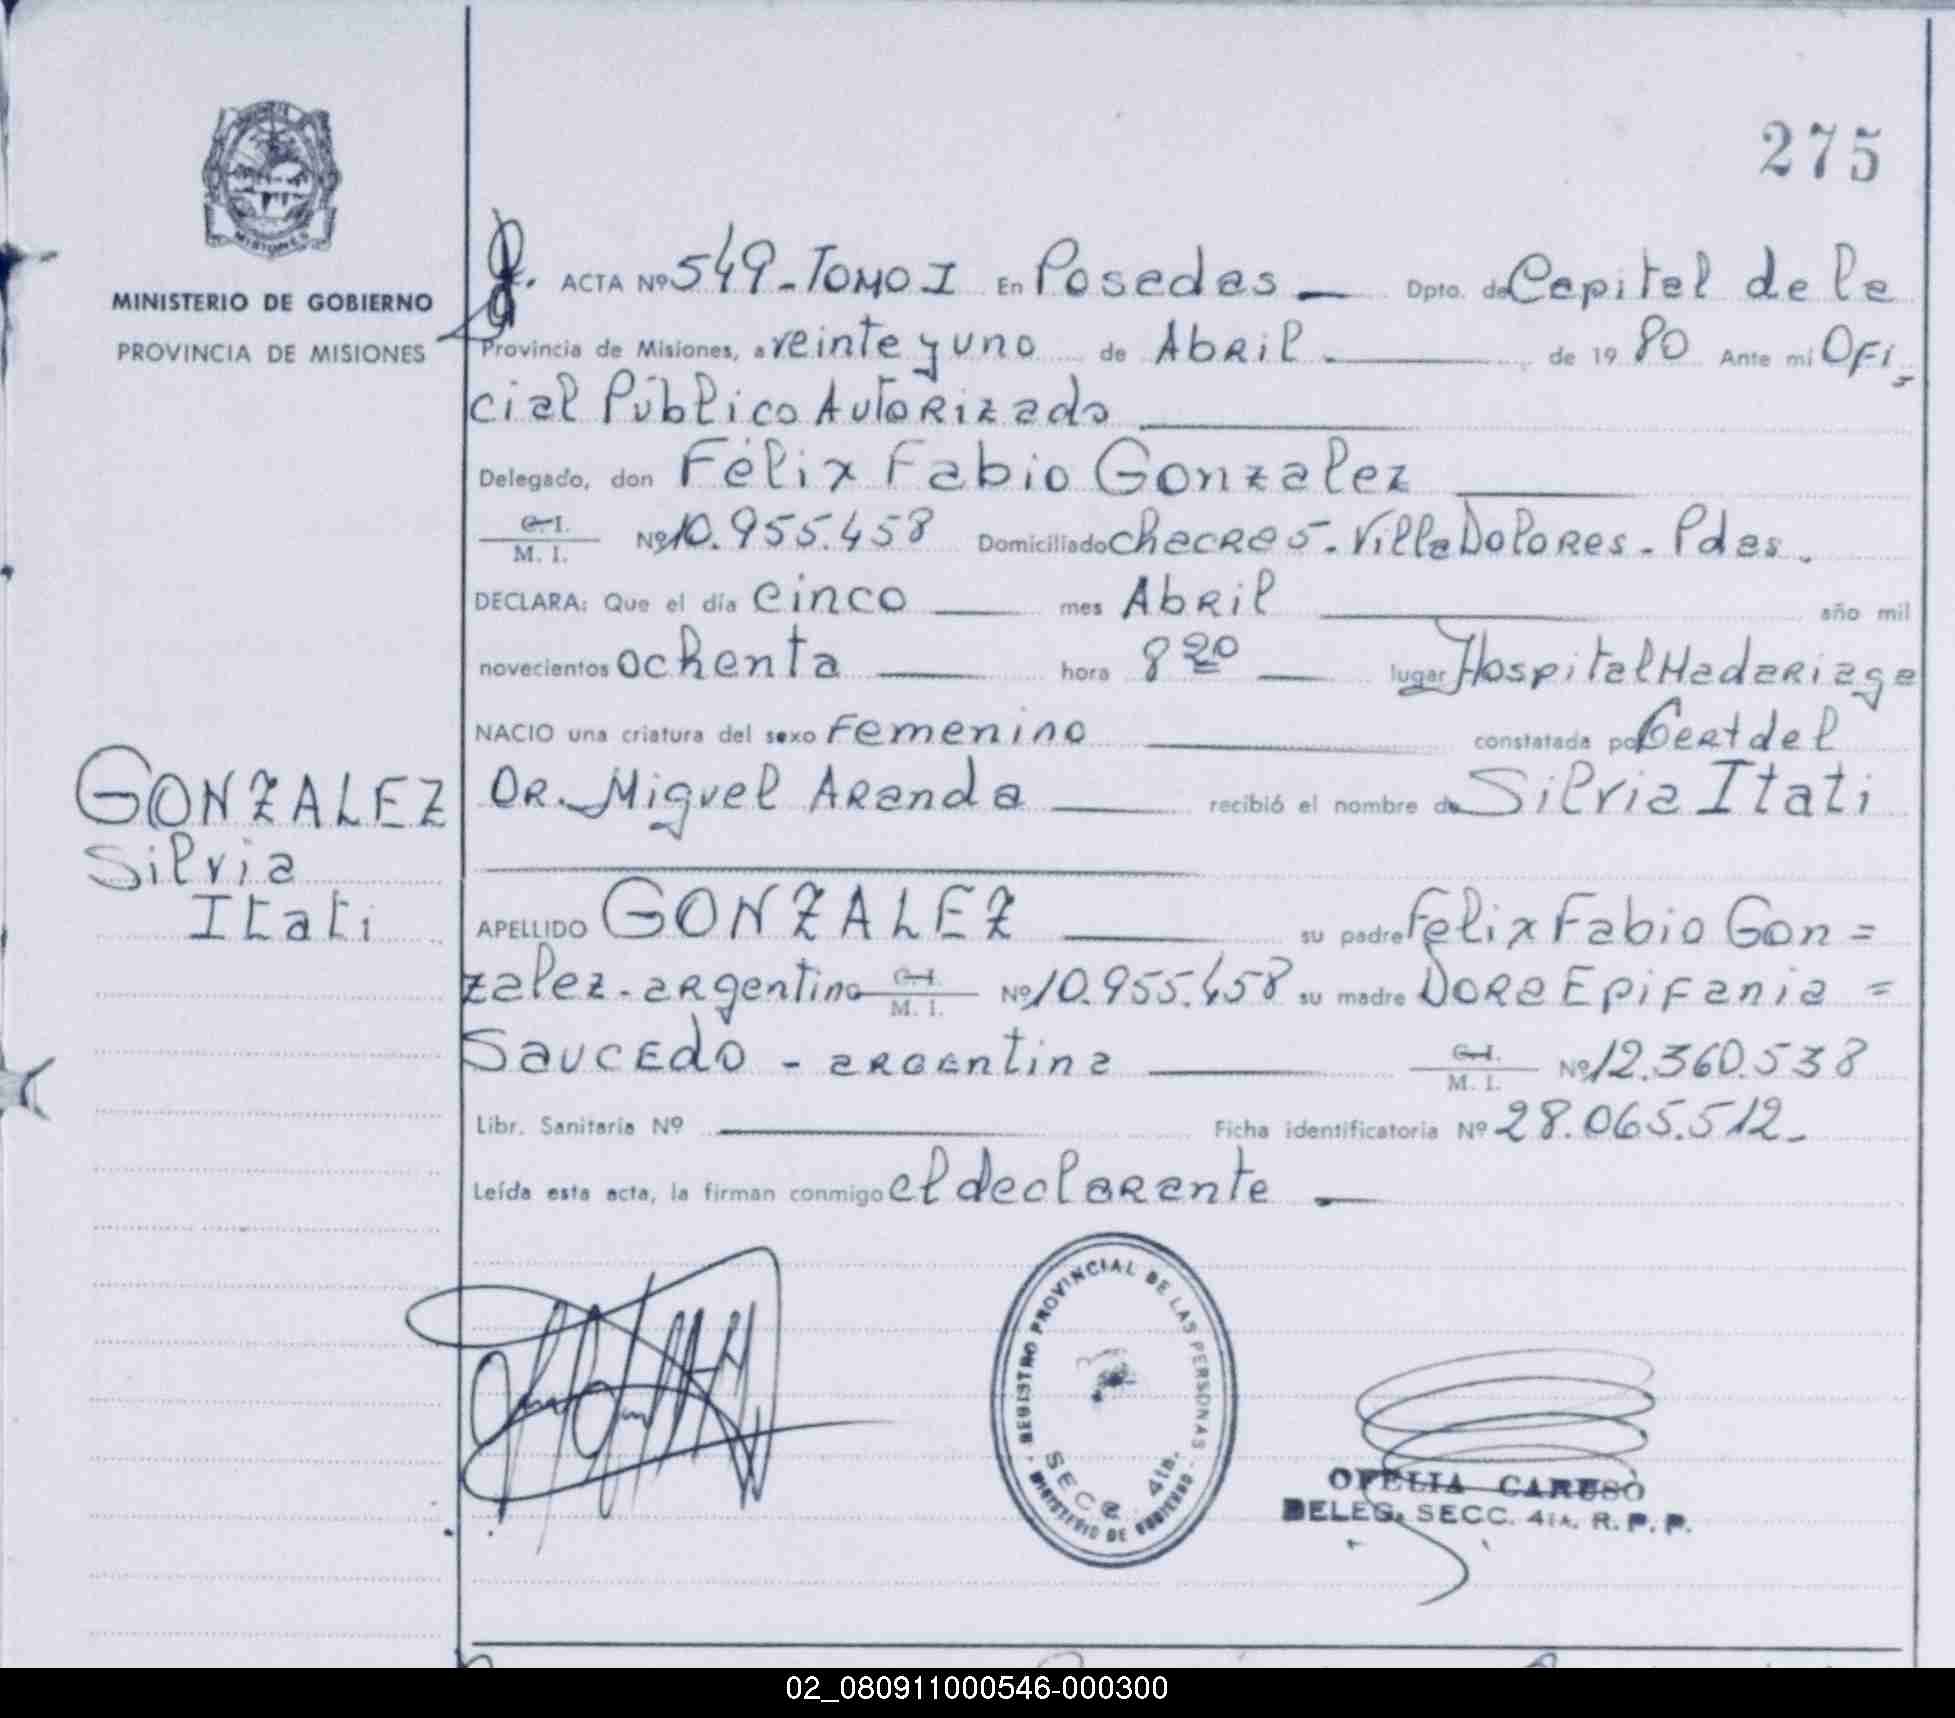 275
MINISTERIO DE GOBIERNO
PROVINCIA DE MISIONES
MISIONES
ACTA Nº 549-TOMO I En Posadas Dpto. de Capital de la
Provincia de Misiones, a veinte y uno de Abril de 1980 Ante mi Ofi=
cial Público Autorizado
Delegado, don Félix Fabio Gonzalez
C.I.
M. I. Nº 10.955.458 Domiciliado chacra 5. Villa Dolores. Pdas.
DECLARA: Que el día cinco mes Abril año mil
novecientos ochenta hora 8 20 lugar Hospital Madariaga
NACIO una criatura del sexo Femenino constatada por Cert del
DR. Miguel Aranda recibió el nombre de Silvia Itati
GONZALEZ
Silvia
Itati
APELLIDO GONZALEZ su padre Felix Fabio Gon=
zalez-argentino C.I.
M. I. Nº 10.955.458 su madre Dora Epifania =
Saucedo - argentina C.I.
M. I. Nº 12.360.538
Libr. Sanitaria Nº Ficha identificatoria Nº 28.065.512.
Leída esta acta, la firman conmigo el declarante
REGISTRO PROVINCIAL DE LAS PERSONAS
SECC. 4ta.
MINISTERIO DE GOBIERNO
OFELIA CARUSO
DELEG. SECC. 4ta. R. P. P.
02_080911000546-000300